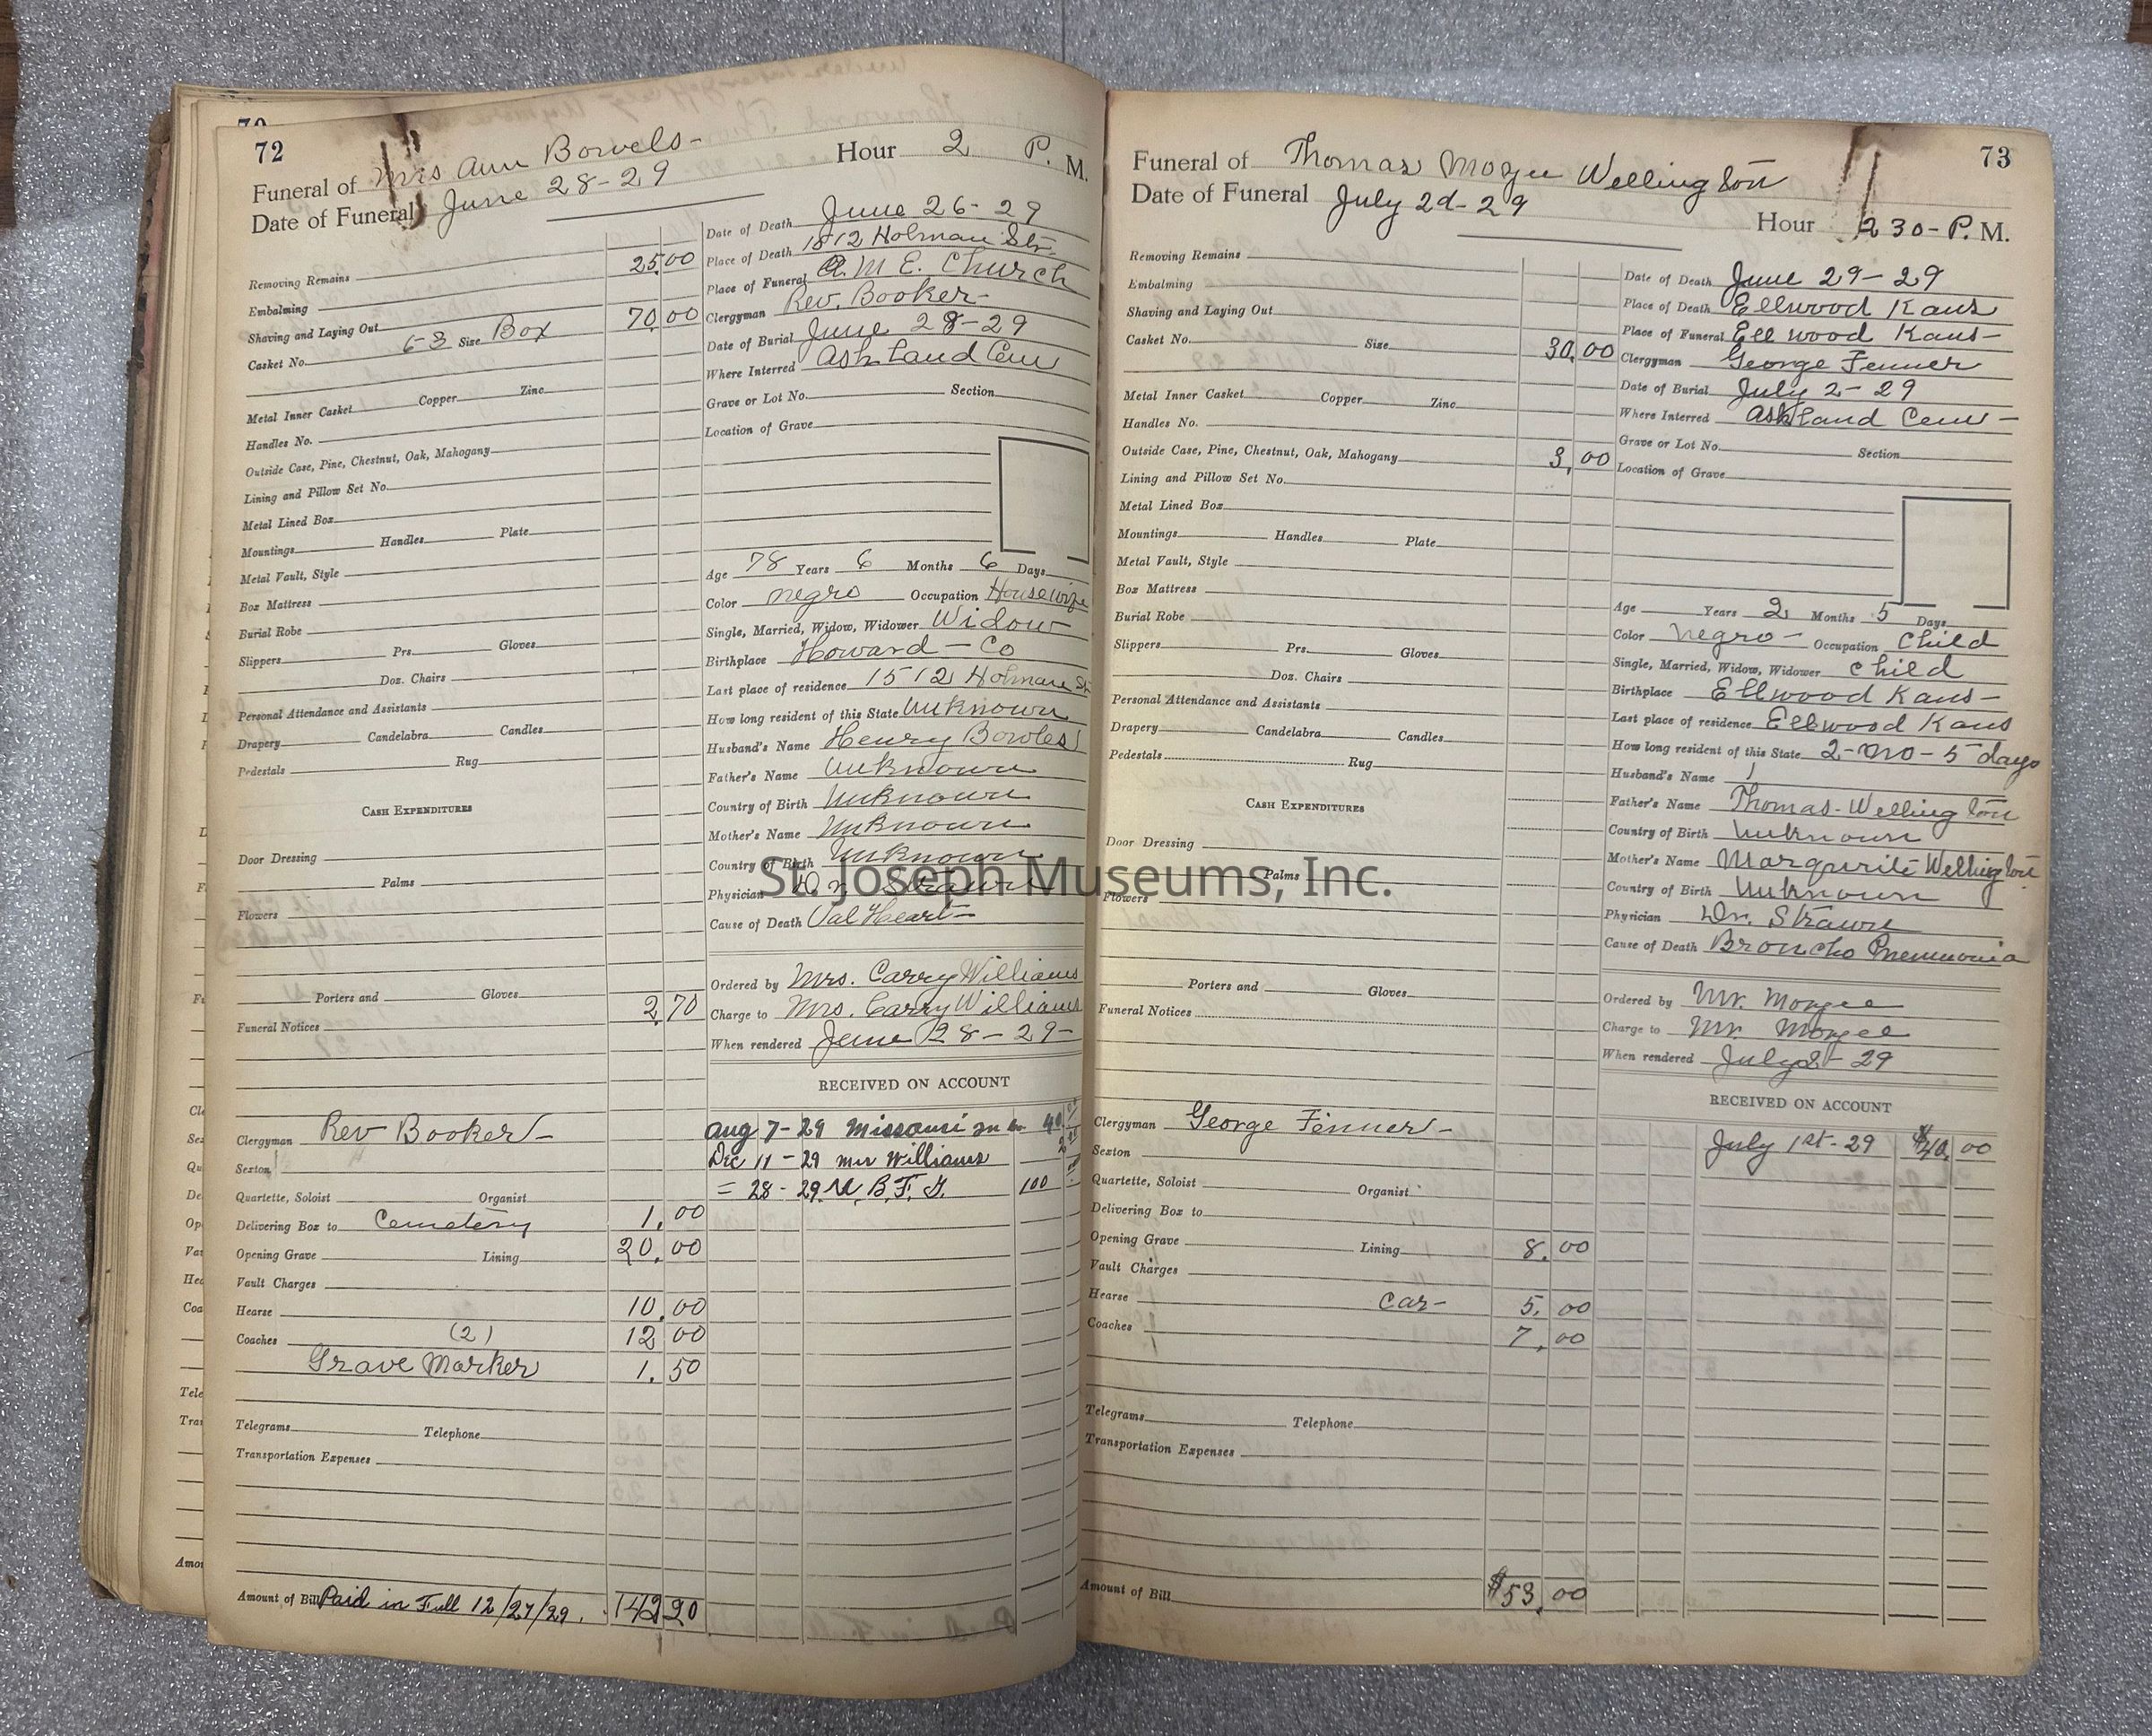 70
72
Funeral of Mrs Ann Bowels-
Hour 2 P. M.
Date of Funeral June 28-29
Removing Remains 25 00
Embalming
Shaving and Laying Out 70 00
Casket No. 6-3 Size Box
Metal Inner Casket Copper Zinc
Handles No.
Outside Case, Pine, Chestnut, Oak, Mahogany
Lining and Pillow Set No.
Metal Lined Box
Mountings Handles Plate
Metal Vault, Style
Box Mattress
Burial Robe
Slippers Prs. Gloves
Doz. Chairs
Personal Attendance and Assistants
Drapery Candelabra Candles
Pedestals Rug
CASH EXPENDITURES
Door Dressing
Palms
Flowers
Porters and Gloves
Funeral Notices 2 70
Clergyman Rev Booker-
Sexton
Quartette, Soloist Organist
Delivering Box to Cemetery 1. 00
Opening Grave Lining 20. 00
Vault Charges
Hearse 10. 00
Coaches (2) 12 00
Grave Marker 1. 50
Telegrams Telephone
Transportation Expenses
Amount of Bill Paid in Full 12/27/29. 142 20
Date of Death June 26-29
Place of Death 1512 Holman Str-
Place of Funeral A. M. E. Church
Clergyman Rev. Booker-
Date of Burial June 28-29
Where Interred Ashland Cem
Grave or Lot No. Section
Location of Grave
Age 78 Years 6 Months 6 Days
Color negro Occupation Housewife
Single, Married, Widow, Widower Widow
Birthplace Howard-Co
Last place of residence 1512 Holman St
How long resident of this State Unknown
Husband's Name Henry Bowles
Father's Name Unknown
Country of Birth Unknown
Mother's Name Unknown
Country of Birth Unknown
Physician Dr. Strawn
Cause of Death Val Heart-
Ordered by Mrs. Carry Williams
Charge to Mrs. Carry Williams
When rendered June 28-29-
RECEIVED ON ACCOUNT
Aug 7-29 Missouri 40
Dec 11-29 Mrs Williams 2
= 28-29 U. B. F. 100
73
Funeral of Thomas Mozee Wellington
Date of Funeral July 2d-29
Hour 2 30- P. M.
Removing Remains
Embalming
Shaving and Laying Out
Casket No. Size 30. 00
Metal Inner Casket Copper Zinc
Handles No.
Outside Case, Pine, Chestnut, Oak, Mahogany 3. 00
Lining and Pillow Set No.
Metal Lined Box
Mountings Handles Plate
Metal Vault, Style
Box Mattress
Burial Robe
Slippers Prs. Gloves
Doz. Chairs
Personal Attendance and Assistants
Drapery Candelabra Candles
Pedestals Rug
CASH EXPENDITURES
Door Dressing
Palms
Flowers
Porters and Gloves
Funeral Notices
Clergyman George Fenner-
Sexton
Quartette, Soloist Organist
Delivering Box to
Opening Grave Lining 8. 00
Vault Charges
Hearse car- 5. 00
Coaches 7. 00
Telegrams Telephone
Transportation Expenses
Amount of Bill $53. 00
Date of Death June 29-29
Place of Death Ellwood Kans
Place of Funeral Ellwood Kans-
Clergyman George Fenner
Date of Burial July 2-29
Where Interred Ashland Cem-
Grave or Lot No. Section
Location of Grave
Age Years 2 Months 5 Days
Color negro- Occupation Child
Single, Married, Widow, Widower child
Birthplace Ellwood Kans-
Last place of residence Ellwood Kans
How long resident of this State 2-mo-5 days
Husband's Name
Father's Name Thomas-Wellington
Country of Birth Unknown
Mother's Name Margurite Wellington
Country of Birth Unknown
Physician Dr. Strawn
Cause of Death Broncho Pnemmonia
Ordered by Mr. Mozee
Charge to Mr. Mozee
When rendered July 2-29
RECEIVED ON ACCOUNT
July 1st-29 $40. 00
St. Joseph Museums, Inc.